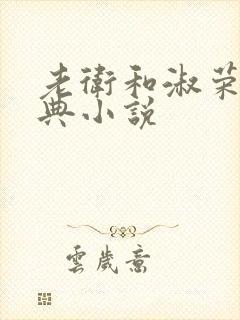 老衛和淑榮
典小說
雲歲意